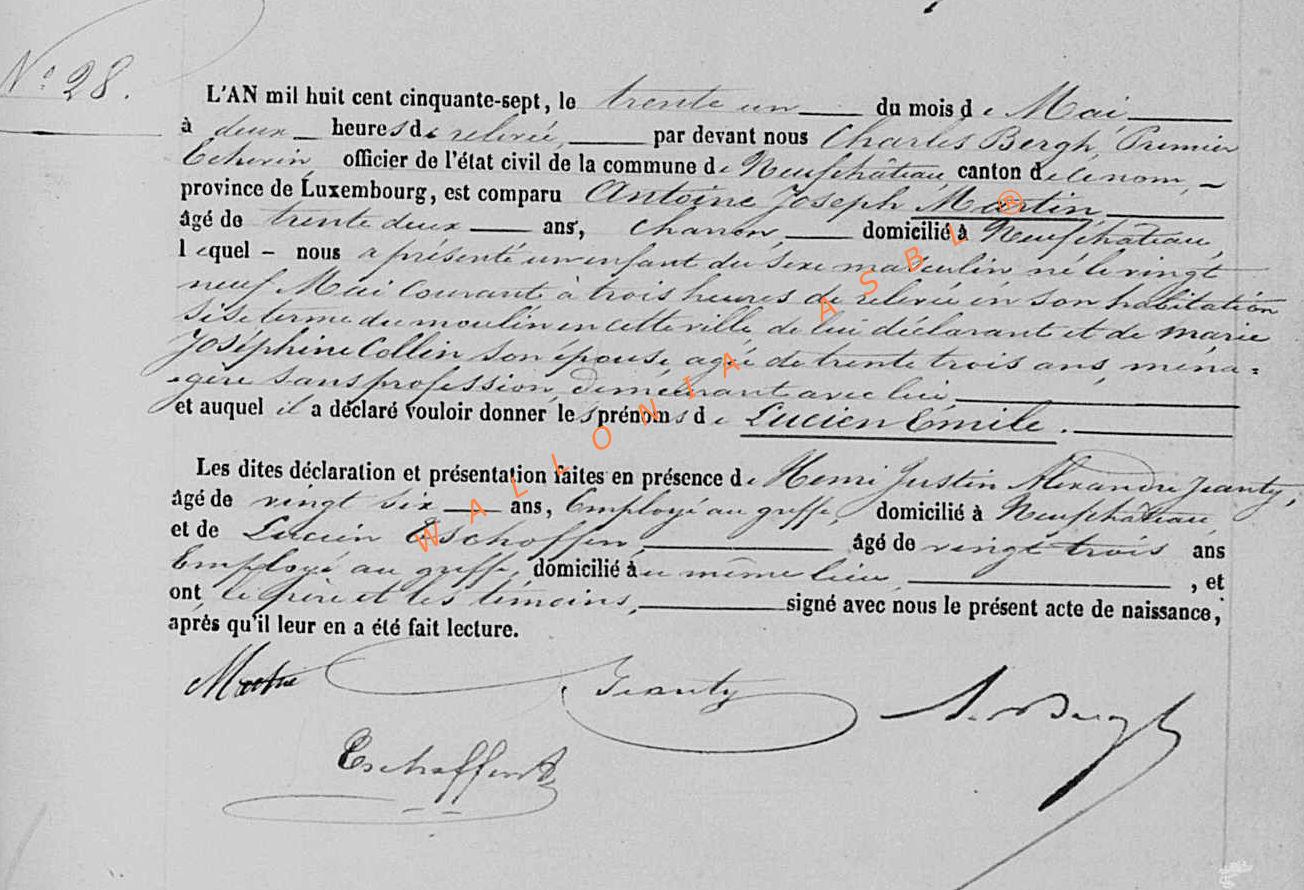 N° 28.
L'AN mil huit cent cinquante-sept, le trente un du mois de Mai
à deux heures de relevée, par devant nous Charles Bergh, Premier
Echevin, officier de l'état civil de la commune de Neufchâteau, canton de ce nom,
province de Luxembourg, est comparu Antoine Joseph Martin,
âgé de trente deux ans, charron, domicilié à Neufchâteau,
lequel nous a présenté un enfant du sexe masculin né le vingt
neuf Mai courant à trois heures de relevée en son habitation
sise terme du moulin en cette ville de lui déclarant et de marie
Joséphine Collin son épouse agée de trente trois ans, ména=
=gère sans profession, demeurant avec lui,
et auquel il a déclaré vouloir donner les prénoms de Lucien Emile.
Les dites déclaration et présentation faites en présence de Henri Justin Alexandre Jeanty,
âgé de vingt six ans, Employé au greffe, domicilié à Neufchâteau,
et de Lucien Eschoffen, âgé de vingt trois ans
Employé au greffe, domicilié au même lieu, , et
ont, le père et les témoins, signé avec nous le présent acte de naissance,
après qu'il leur en a été fait lecture.
Martin Jeanty Bergh
WALLONIA ASBL ®